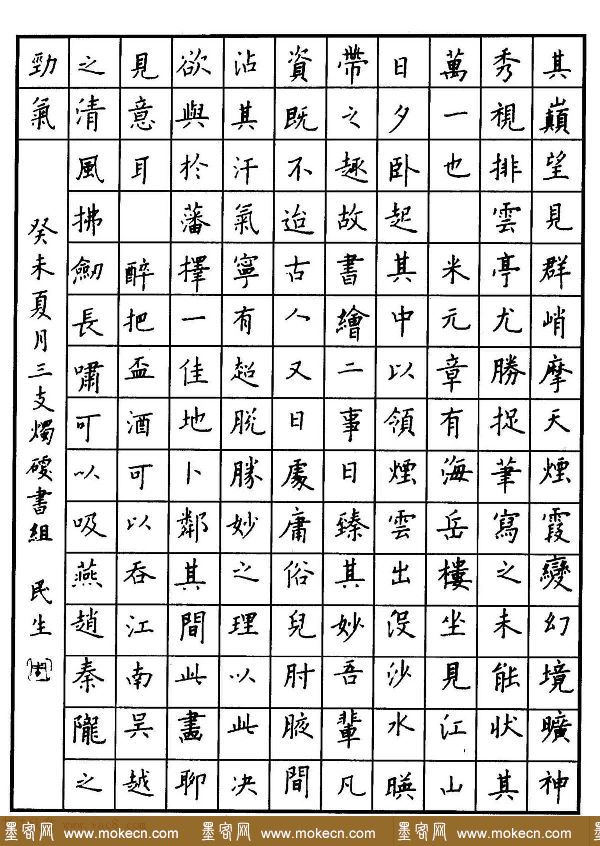 其巔望見群峭摩天煙霞變幻境曠神
秀視排雲亭尤勝捉筆寫之未能狀其
萬一也 米元章有海岳樓坐見江山
日夕卧起其中以領煙雲出沒沙水暎
帶之趣故書繪二事日臻其妙吾輩凡
資既不迨古人又日處庸俗兒肘腋間
沾其汗氣寧有超脫勝妙之理以此決
欲與於藩擇一佳地卜鄰其間此畫聊
見意耳 醉把盃酒可以吞江南吳越
之清風拂劍長嘯可以吸燕趙秦隴之
勁氣 癸未夏月三支燭硬書組 民生
墨客网 www.mokecn.com 墨客网 www.mokecn.com 墨客网 www.mokecn.com